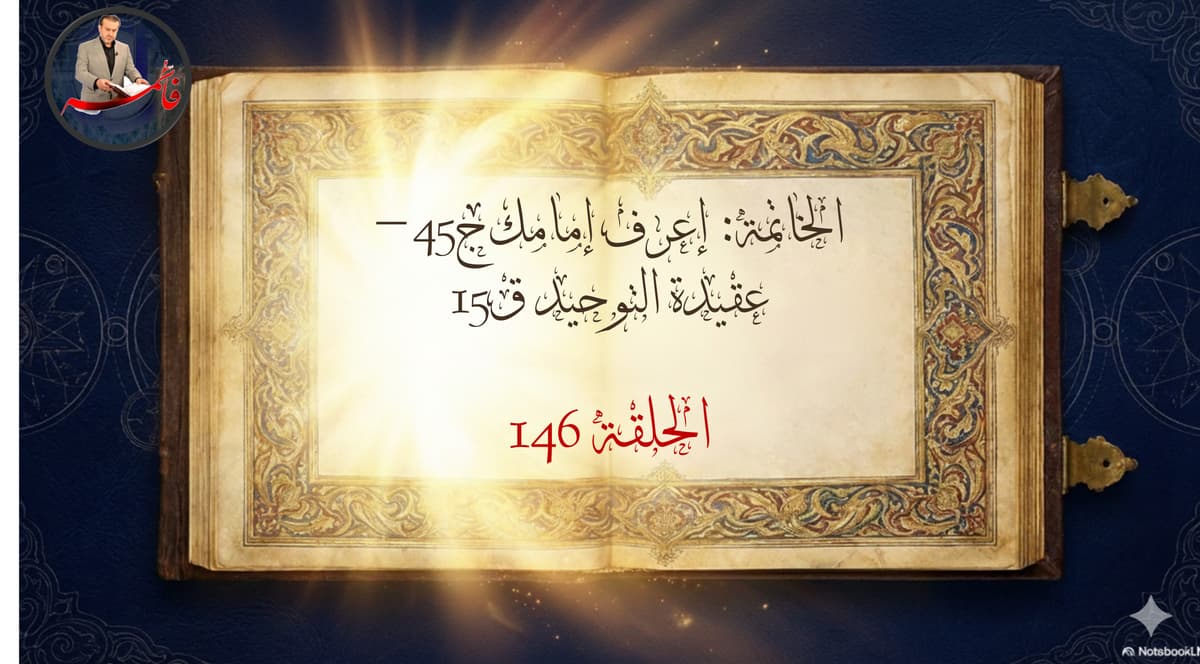 فاطمة
الخاتمة: إعرف إمامك ج45 –
عقيدة التوحيد ق15
الحلقة 146
NotsbookLM